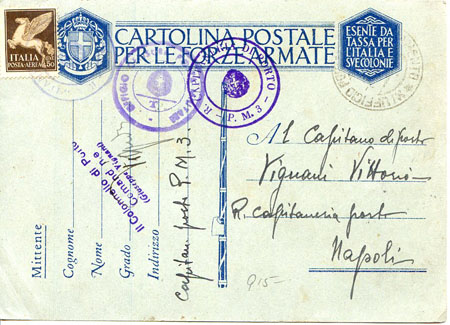 ITALIA
POSTA AEREA
CARTOLINA POSTALE
PER LE FORZE ARMATE
ESENTE DA
TASSA PER
L'ITALIA E
SVE COLONIE
R. CAPITANERIA DI PORTO
- P. M. 3 -
UFFICIO
Al Capitano di porto
Vignani Vittorio
R. Capitaneria porto
Napoli
915-
Il Colonnello di Porto
Comandante
(Giuseppe Vignani)
Mittente
Cognome
Nome
Grado
Indirizzo
Capitan. porto P.M.3.